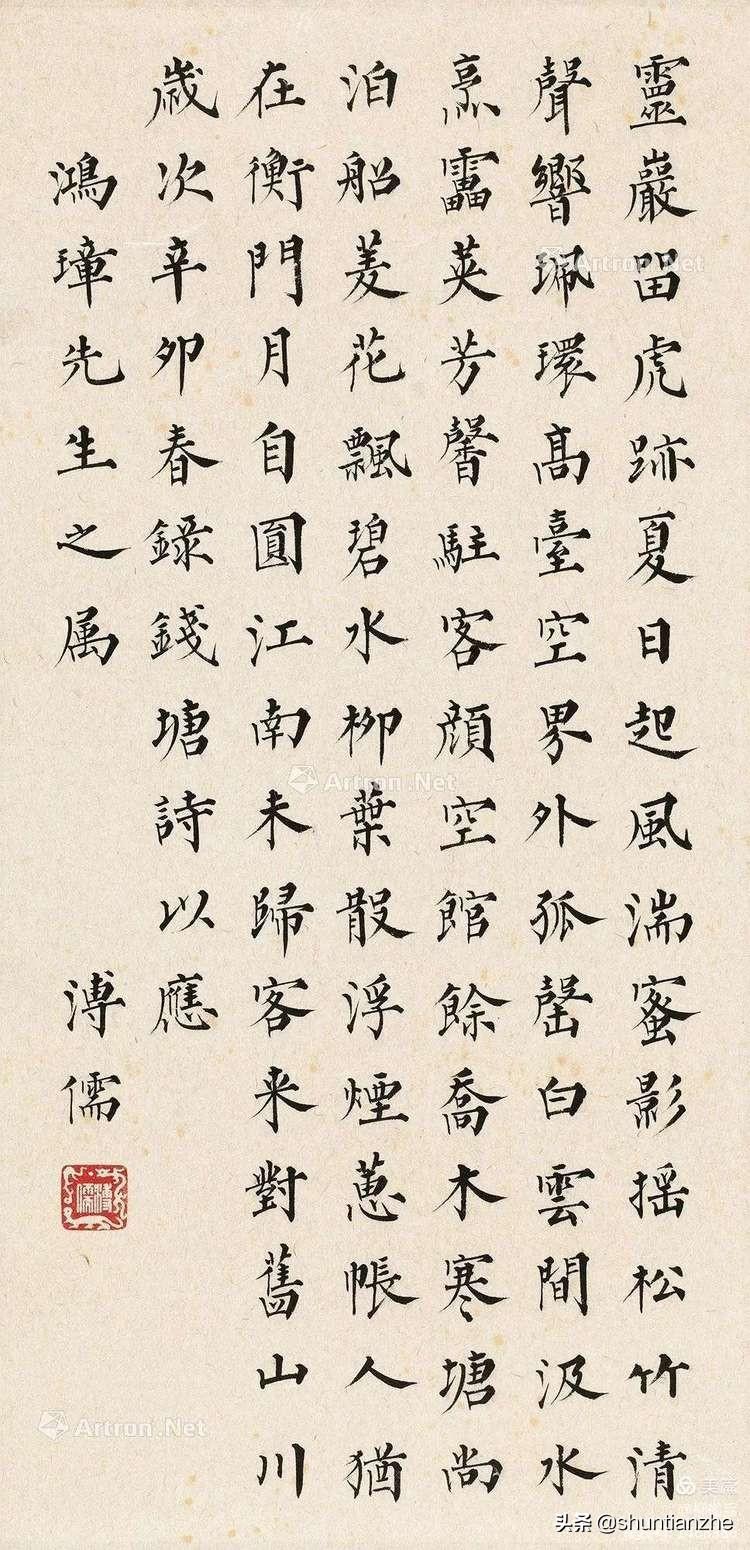 靈巖畱虎跡夏日起風湍蜜影摇松竹清
聲響珮環髙臺空界外孤罄白雲間汲水
烹靁英芳馨駐客顔空館餘喬木寒塘尚
泊船菱花飄碧水柳葉散浮煙蕙帳人猶
在衡門月自圓江南未歸客来對舊山川
歲次辛卯春錄錢塘詩以應
鴻璋先生之属
溥儒
溥儒
Artron.Net
Artron.Net
Artron.Net
美篇
头条 @shuntianzhe